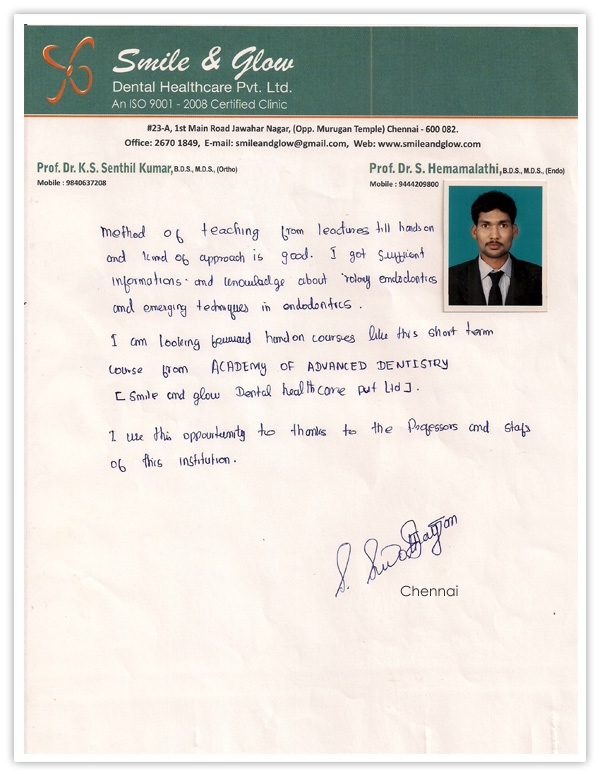 Smile & Glow
Dental Healthcare Pvt. Ltd.
An ISO 9001 - 2008 Certified Clinic
#23-A, 1st Main Road Jawahar Nagar, (Opp. Murugan Temple) Chennai - 600 082.
Office: 2670 1849, E-mail: smileandglow@gmail.com, Web: www.smileandglow.com
Prof. Dr. K.S. Senthil Kumar, B.D.S., M.D.S., (Ortho)
Mobile : 9840637208
Prof. Dr. S. Hemamalathi, B.D.S., M.D.S., (Endo)
Mobile : 9444209800
Method of teaching from leactures till hands on
and kind of approach is good. I got sufficient
informations and knowladge about rotary endodontics
and emerging techniques in endodontics.
I am looking forward handon courses like this short term
course from ACADEMY OF ADVANCED DENTISTRY
[Smile and glow Dental health care pvt Ltd].
I use this oppourtunity to thanks to the Professors and stafs
of this institution.
S.
Chennai